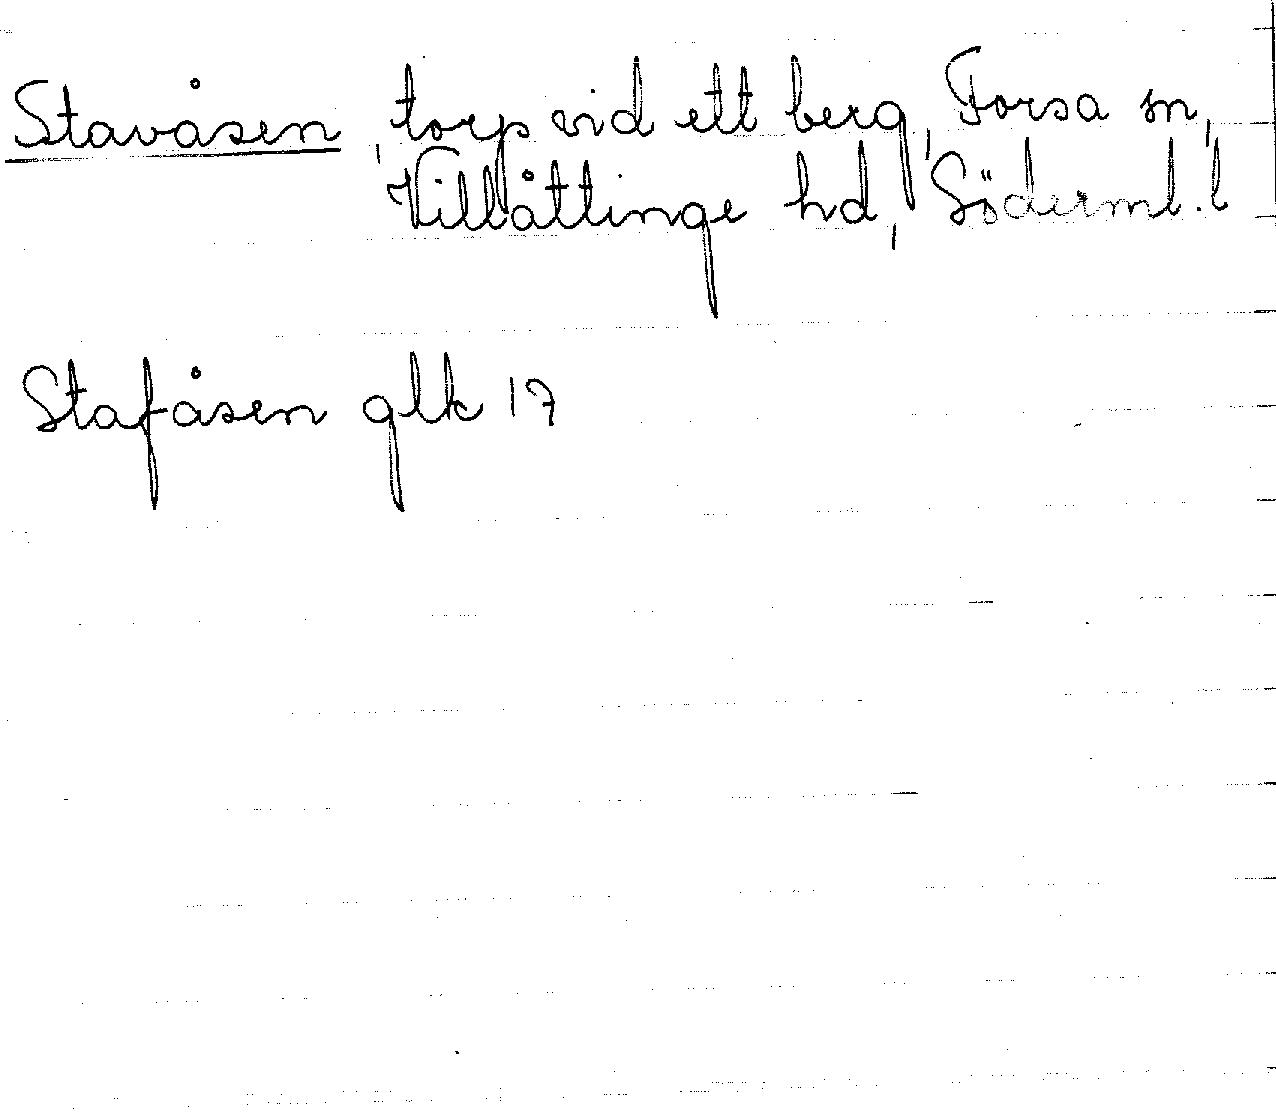 Stavåsen, torp vid ett berg, Forsa sn,
Villåttinge hd, Söderml. l
Stafåsen glk 17